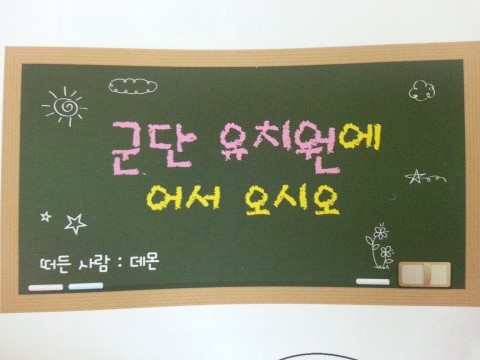 군단 유치원에
어서 오시오
떠든 사람 : 데몬